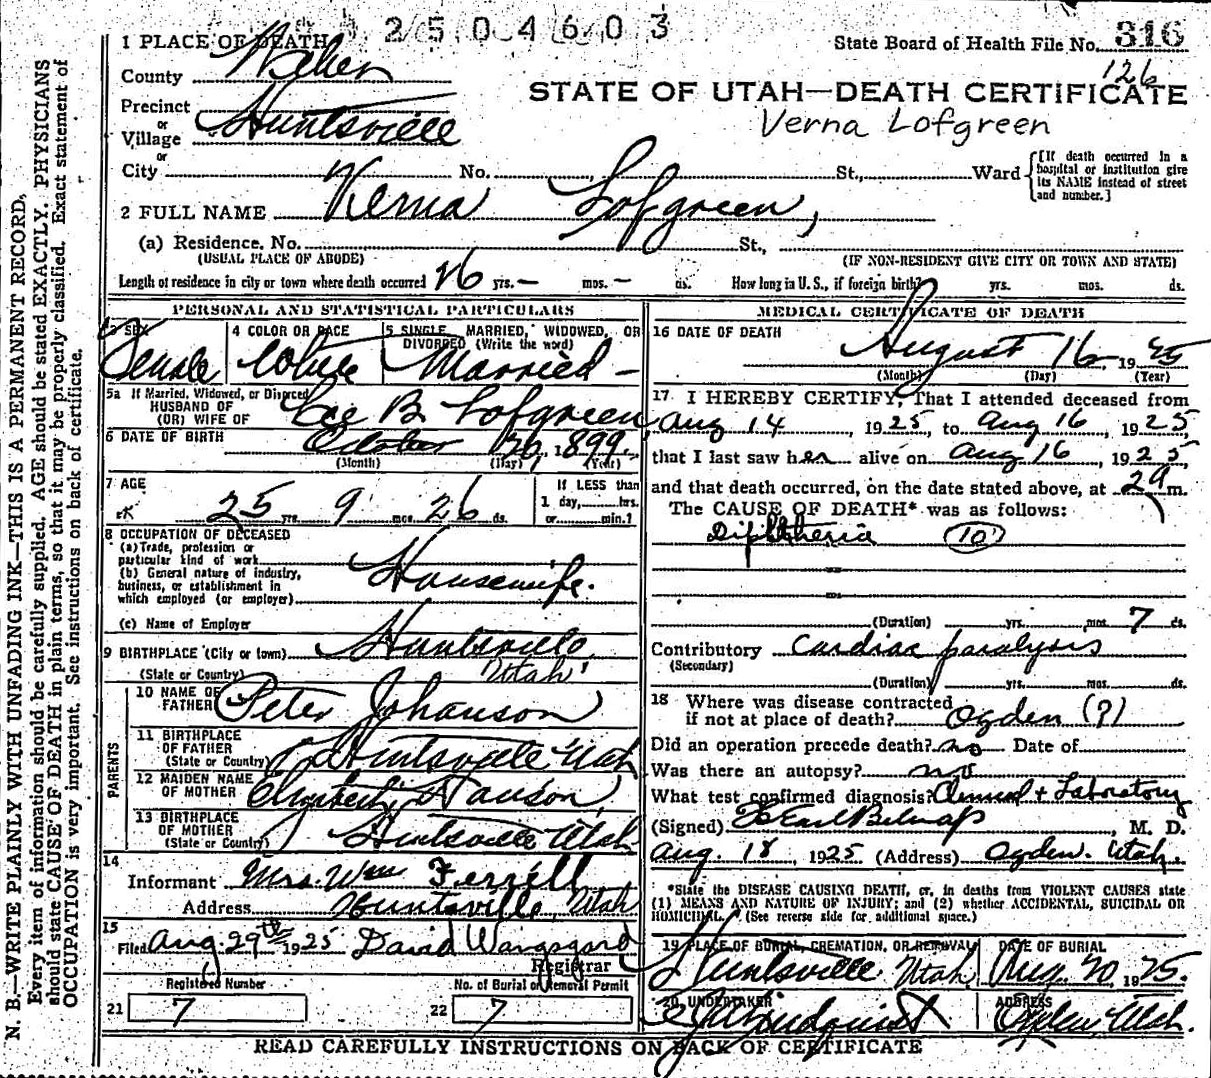 2504603
1 PLACE OF DEATH
State Board of Health File No. 316
126
County Weber
STATE OF UTAH—DEATH CERTIFICATE
Verna Lofgreen
Precinct
or
Village Huntsville
or
City No. St., Ward
{[If death occurred in a hospital or institution give its NAME instead of street and number.]
2 FULL NAME Verna Lofgreen,
(a) Residence. No. St.,
(USUAL PLACE OF ABODE) (IF NON-RESIDENT GIVE CITY OR TOWN AND STATE)
Length of residence in city or town where death occurred 26 yrs. — mos. — ds. How long in U. S., if foreign birth? yrs. mos. ds.
PERSONAL AND STATISTICAL PARTICULARS
3 SEX Female
4 COLOR OR RACE White
5 SINGLE, MARRIED, WIDOWED, OR DIVORCED (Write the word) Married —
5a If Married, Widowed, or Divorced
HUSBAND OF
(OR) WIFE OF B. Lofgreen
6 DATE OF BIRTH October 20, 1899
(Month) (Day) (Year)
7 AGE 25 yrs. 9 mos. 26 ds.
If LESS than
1 day, hrs.
or min.?
8 OCCUPATION OF DECEASED
(a) Trade, profession or
particular kind of work
(b) General nature of industry,
business, or establishment in
which employed (or employer)
Housewife.
(c) Name of Employer
9 BIRTHPLACE (City or town) Huntsville
(State or Country) Utah
PARENTS
10 NAME OF FATHER Peter Johanson
11 BIRTHPLACE OF FATHER (State or Country) Huntsville Utah
12 MAIDEN NAME OF MOTHER Elizabeth
13 BIRTHPLACE OF MOTHER (State or Country) Huntsville Utah
14
Informant Mrs. Wm Ferrell
Address Huntsville, Utah
15
Filed Aug. 29th 1925 David Wangsgard
Registrar
Registered Number
21 7
No. of Burial or Removal Permit
22 7
MEDICAL CERTIFICATE OF DEATH
16 DATE OF DEATH
August 16, 1925
(Month) (Day) (Year)
17 I HEREBY CERTIFY, That I attended deceased from
Aug 14, 1925, to Aug 16, 1925,
that I last saw her alive on Aug 16, 1925,
and that death occurred, on the date stated above, at m.
The CAUSE OF DEATH* was as follows:
Diphtheria (10)
(Duration) yrs. mos. 7 ds.
Contributory Cardiac paralysis
(Secondary)
(Duration) yrs. mos. ds.
18 Where was disease contracted
if not at place of death? Ogden (?)
Did an operation precede death? no Date of
Was there an autopsy? no
What test confirmed diagnosis? Clinical + Laboratory
(Signed) Earl Belnap, M. D.
Aug. 18, 1925 (Address) Ogden. Utah.
*State the DISEASE CAUSING DEATH, or, in deaths from VIOLENT CAUSES state
(1) MEANS AND NATURE OF INJURY; and (2) whether ACCIDENTAL, SUICIDAL OR
HOMICIDAL. (See reverse side for additional space.)
19 PLACE OF BURIAL, CREMATION, OR REMOVAL DATE OF BURIAL
Huntsville Utah Aug. 20 1925.
20 UNDERTAKER ADDRESS
Lindquist Ogden Utah.
READ CAREFULLY INSTRUCTIONS ON BACK OF CERTIFICATE
N. B.—WRITE PLAINLY WITH UNFADING INK—THIS IS A PERMANENT RECORD.
Every item of information should be carefully supplied. AGE should be stated EXACTLY. PHYSICIANS
should state CAUSE OF DEATH in plain terms, so that it may be properly classified. Exact statement of
OCCUPATION is very important. See instructions on back of certificate.